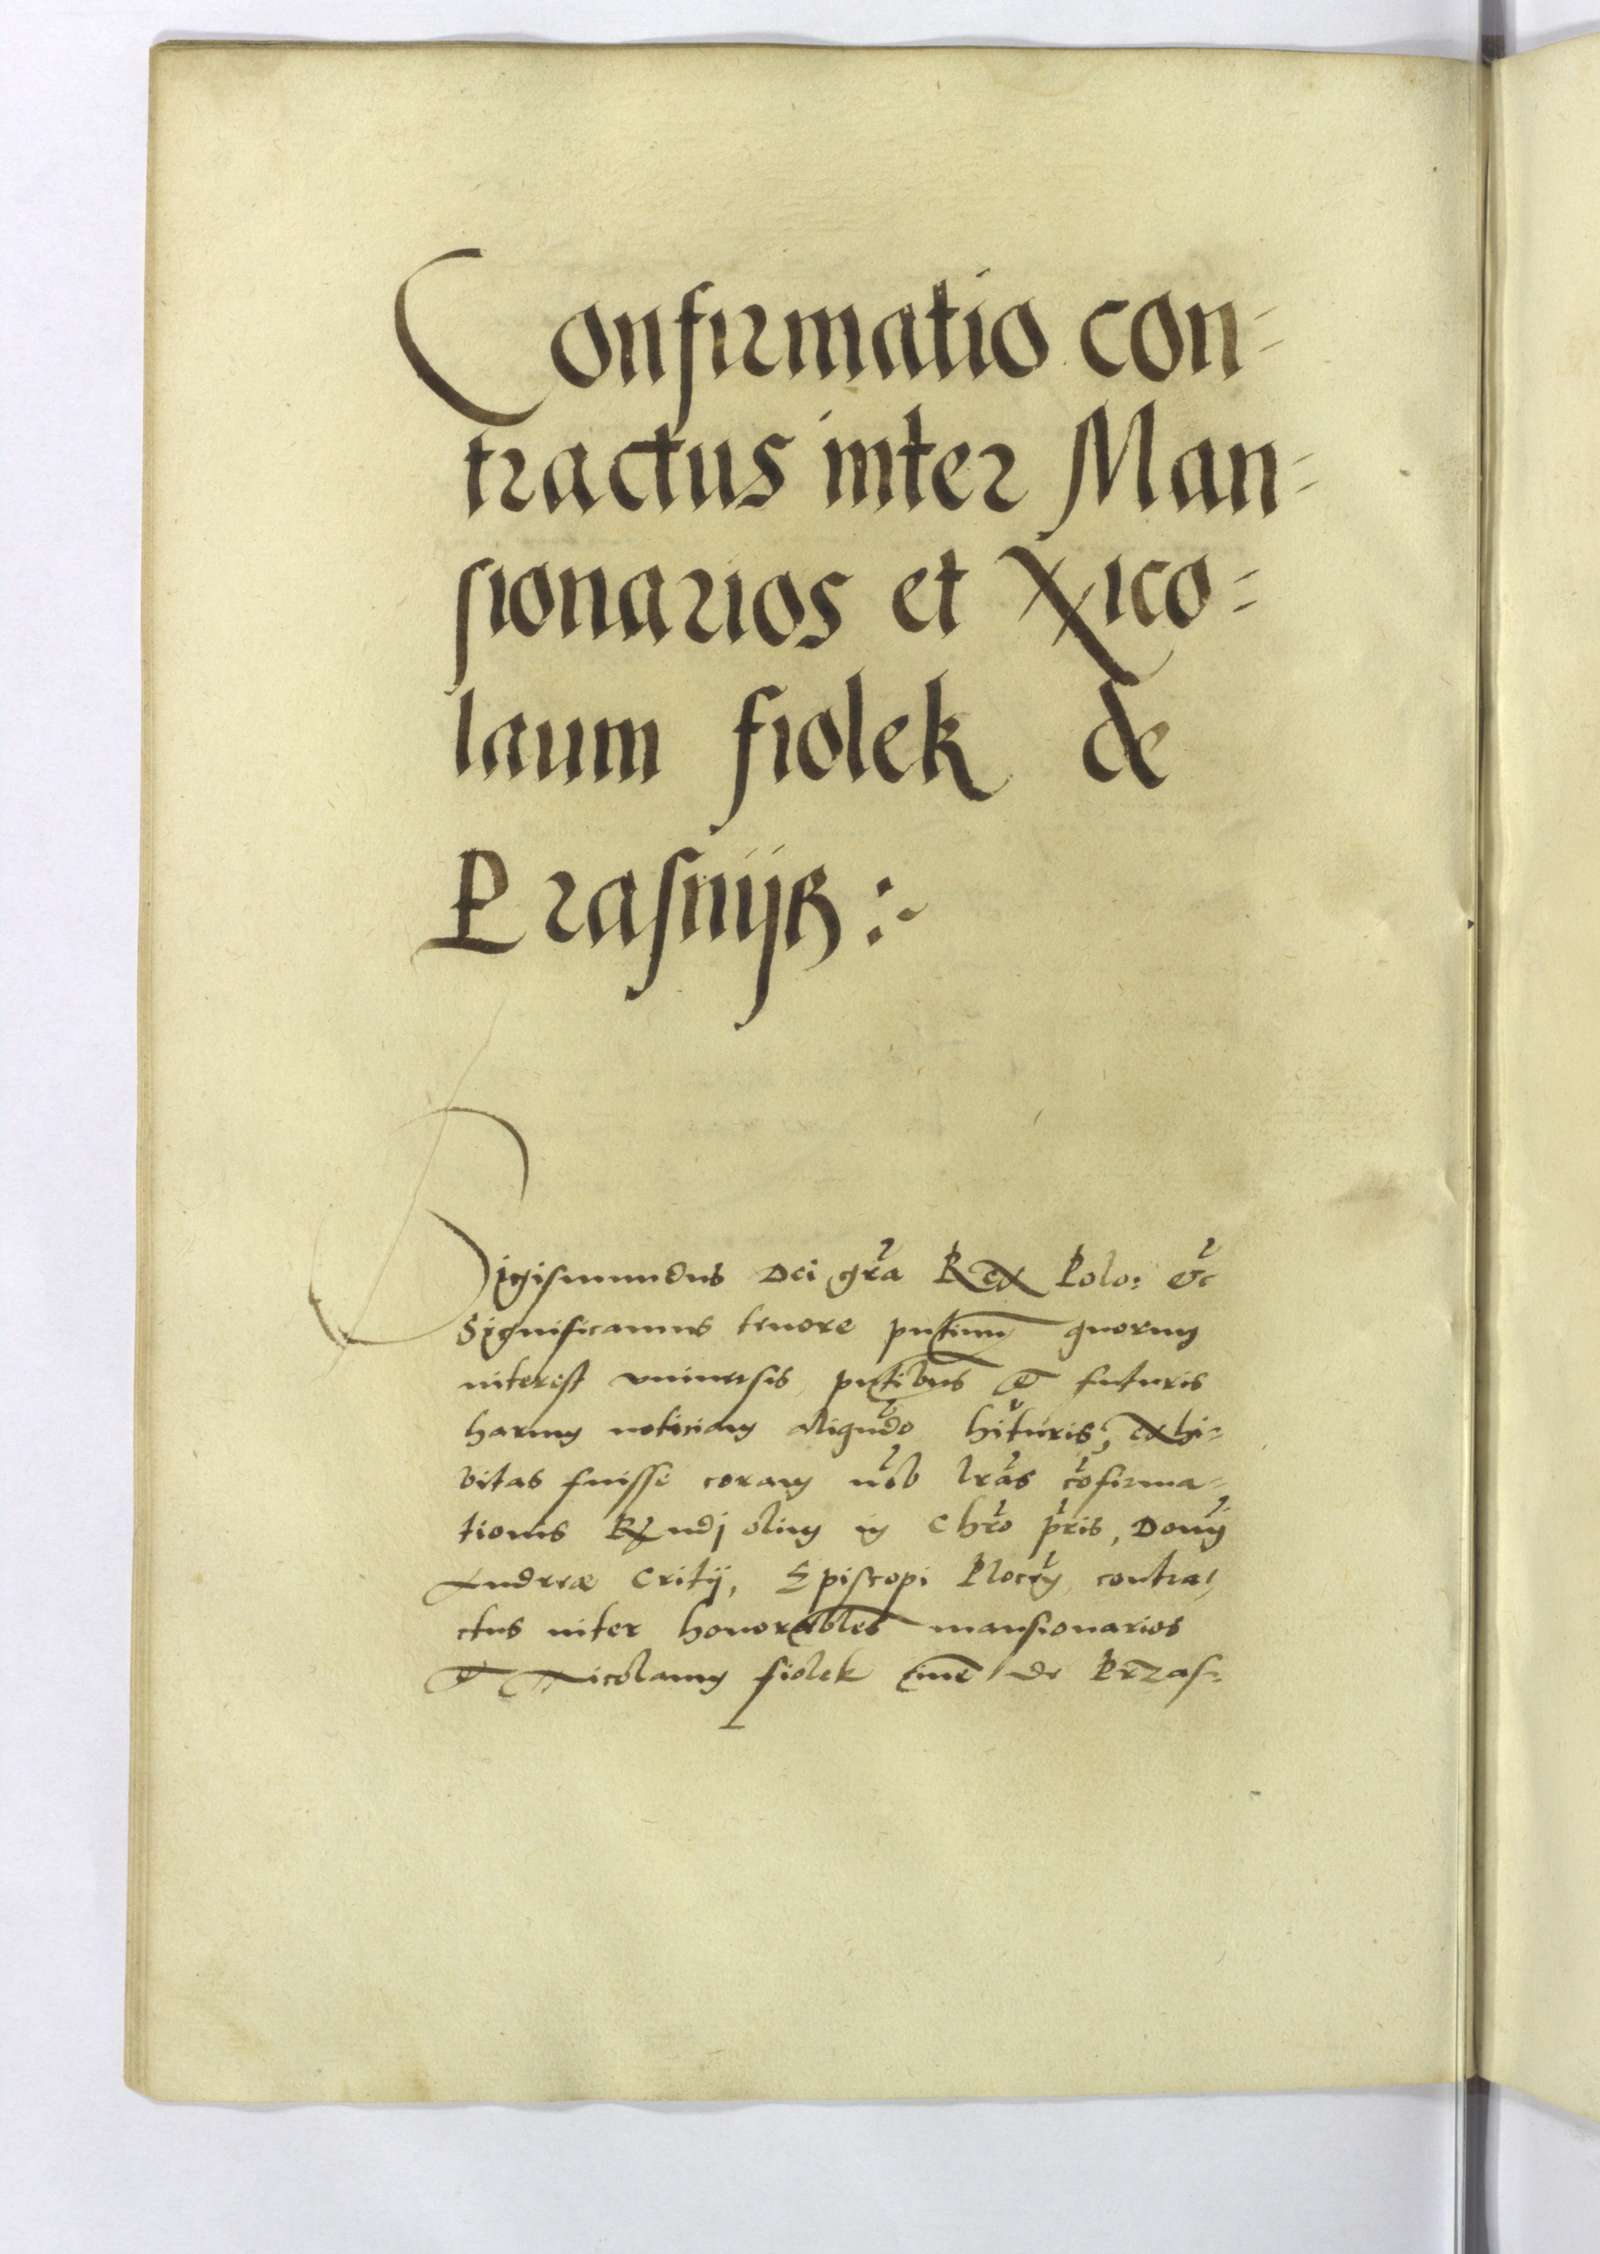 Confirmatio con=
tractus inter Man=
sionarios et Nico=
laum fiolek de
Prasnÿß :~
Sigismundus Dei gr̃a Rex Polo: &c̃
Significamus tenore pñtium quorum
interest uniuersis pñtibus et futuris
harum noticiam aliqũdo hituris, exhi=
bitas fuisse coram nõb lr̃as cõfirma=
tionis Rx̃ndj olim in Chr̃o pr̃is, Domĩ
Andreæ Critij, Episcopi Plocen̄, contra,
ctus inter honorabiles mansionarios
et Nicolaum fiolek ciuē de Przas=